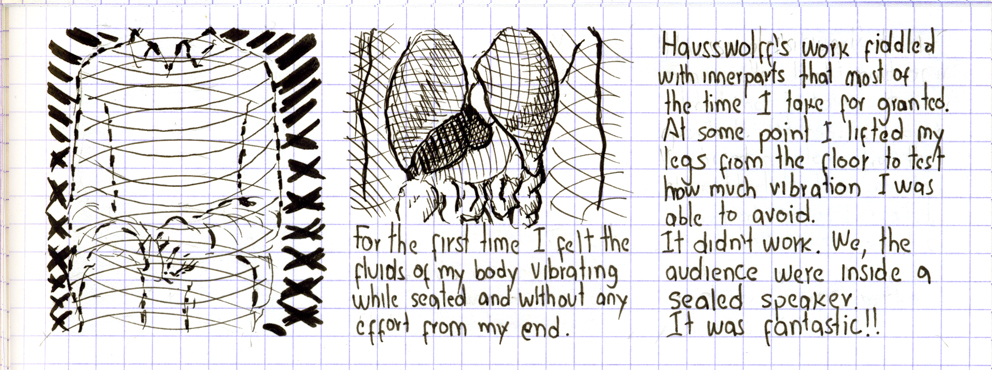 For the first time I felt the
fluids of my body vibrating
while seated and without any
effort from my end.
Hausswolff's work fiddled
with innerparts that most of
the time I take for granted.
At some point I lifted my
legs from the floor to test
how much vibration I was
able to avoid.
It didn't work. We, the
audience were inside a
sealed speaker.
It was fantastic!!